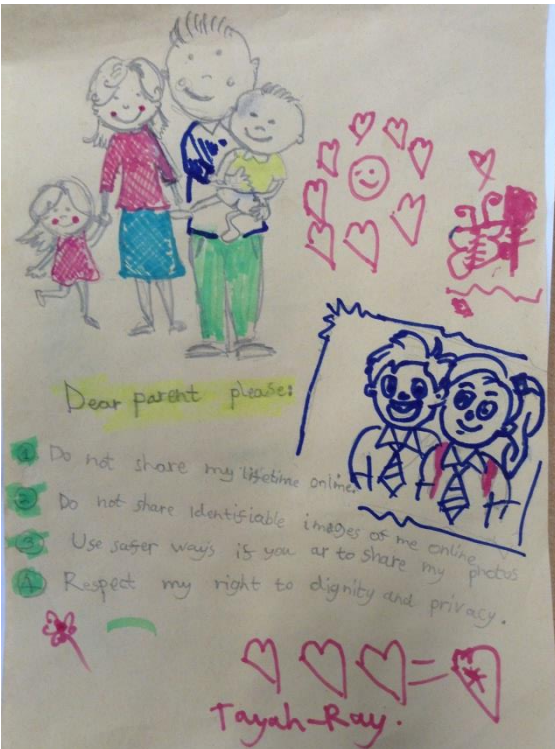 Dear parent please:
1 Do not share my lifetime online.
2 Do not share Identifiable images of me online
3 Use safer ways if you ar to share my photos
4 Respect my right to dignity and privacy.
Tayah-Ray.